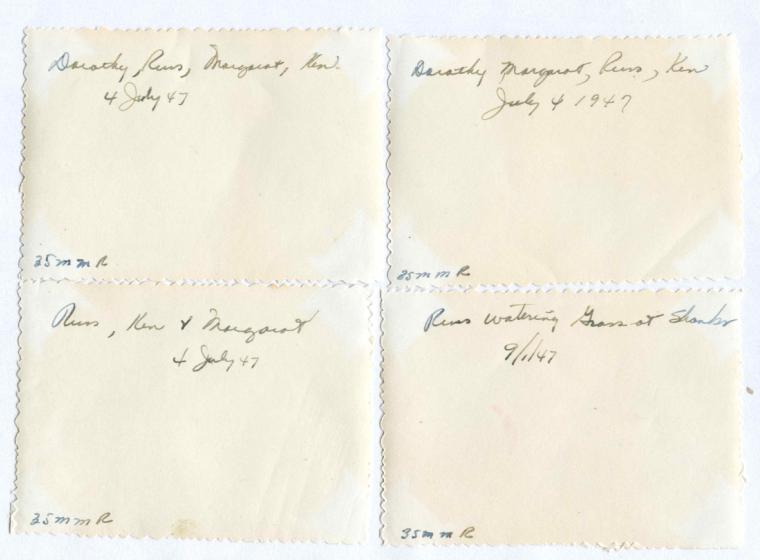 Dorothy, Russ, Margaret, Ken
4 July 47
35mm R
Dorothy Margaret, Russ, Ken
July 4 1947
35mm R
Russ, Ken & Margaret
4 July 47
35mm R
Russ watering Grass at Shanks
9/1/47
35mm R